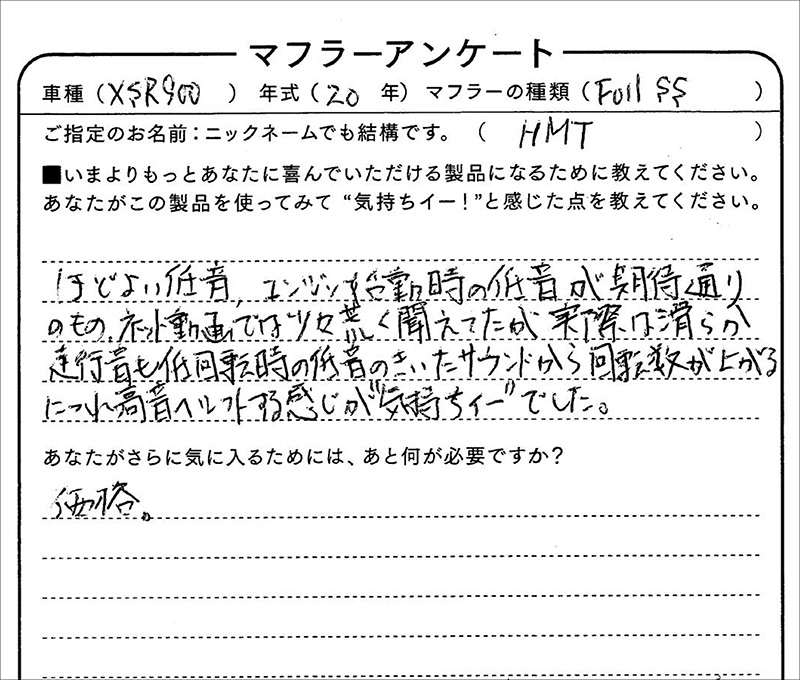 マフラーアンケート
車種（XSR900）年式（20年）マフラーの種類（Full SS）
ご指定のお名前：ニックネームでも結構です。（HMT）
■いまよりもっとあなたに喜んでいただける製品になるために教えてください。
あなたがこの製品を使ってみて“気持ちイー！”と感じた点を教えてください。
ほどよい低音、エンジン始動時の低音が期待通り
のもの、ネット動画では少々荒く聞えてたが実際は滑らか
走行音も低回転時の低音のきいたサウンドから回転数が上がる
につれ高音へシフトする感じが“気持ちイー”でした。
あなたがさらに気に入るためには、あと何が必要ですか？
価格。